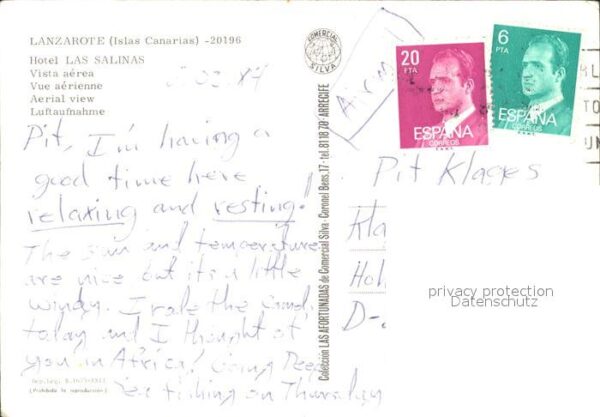 LANZAROTE (Islas Canarias) -20196
Hotel LAS SALINAS
Vista aérea
Vue aérienne
Aerial view
Luftaufnahme
Pit, I'm having a
good time here
relaxing and resting!
The sun and temperature
are nice but it's a little
windy. I rode the
today and I thought of
you in Africa! Going Deep
Sea fishing on Thursday
(Prohibida la reproducción)
COMERCIAL
SILVA
Colección LAS AFORTUNADAS de Comercial Silva - Coronel Bens, 17 - tel. 81 18 70 ARRECIFE
20
PTA
ESPAÑA
CORREOS
6
PTA
ESPAÑA
CORREOS
Pit Klages
Kla
Hoh
D-
privacy protection
Datenschutz